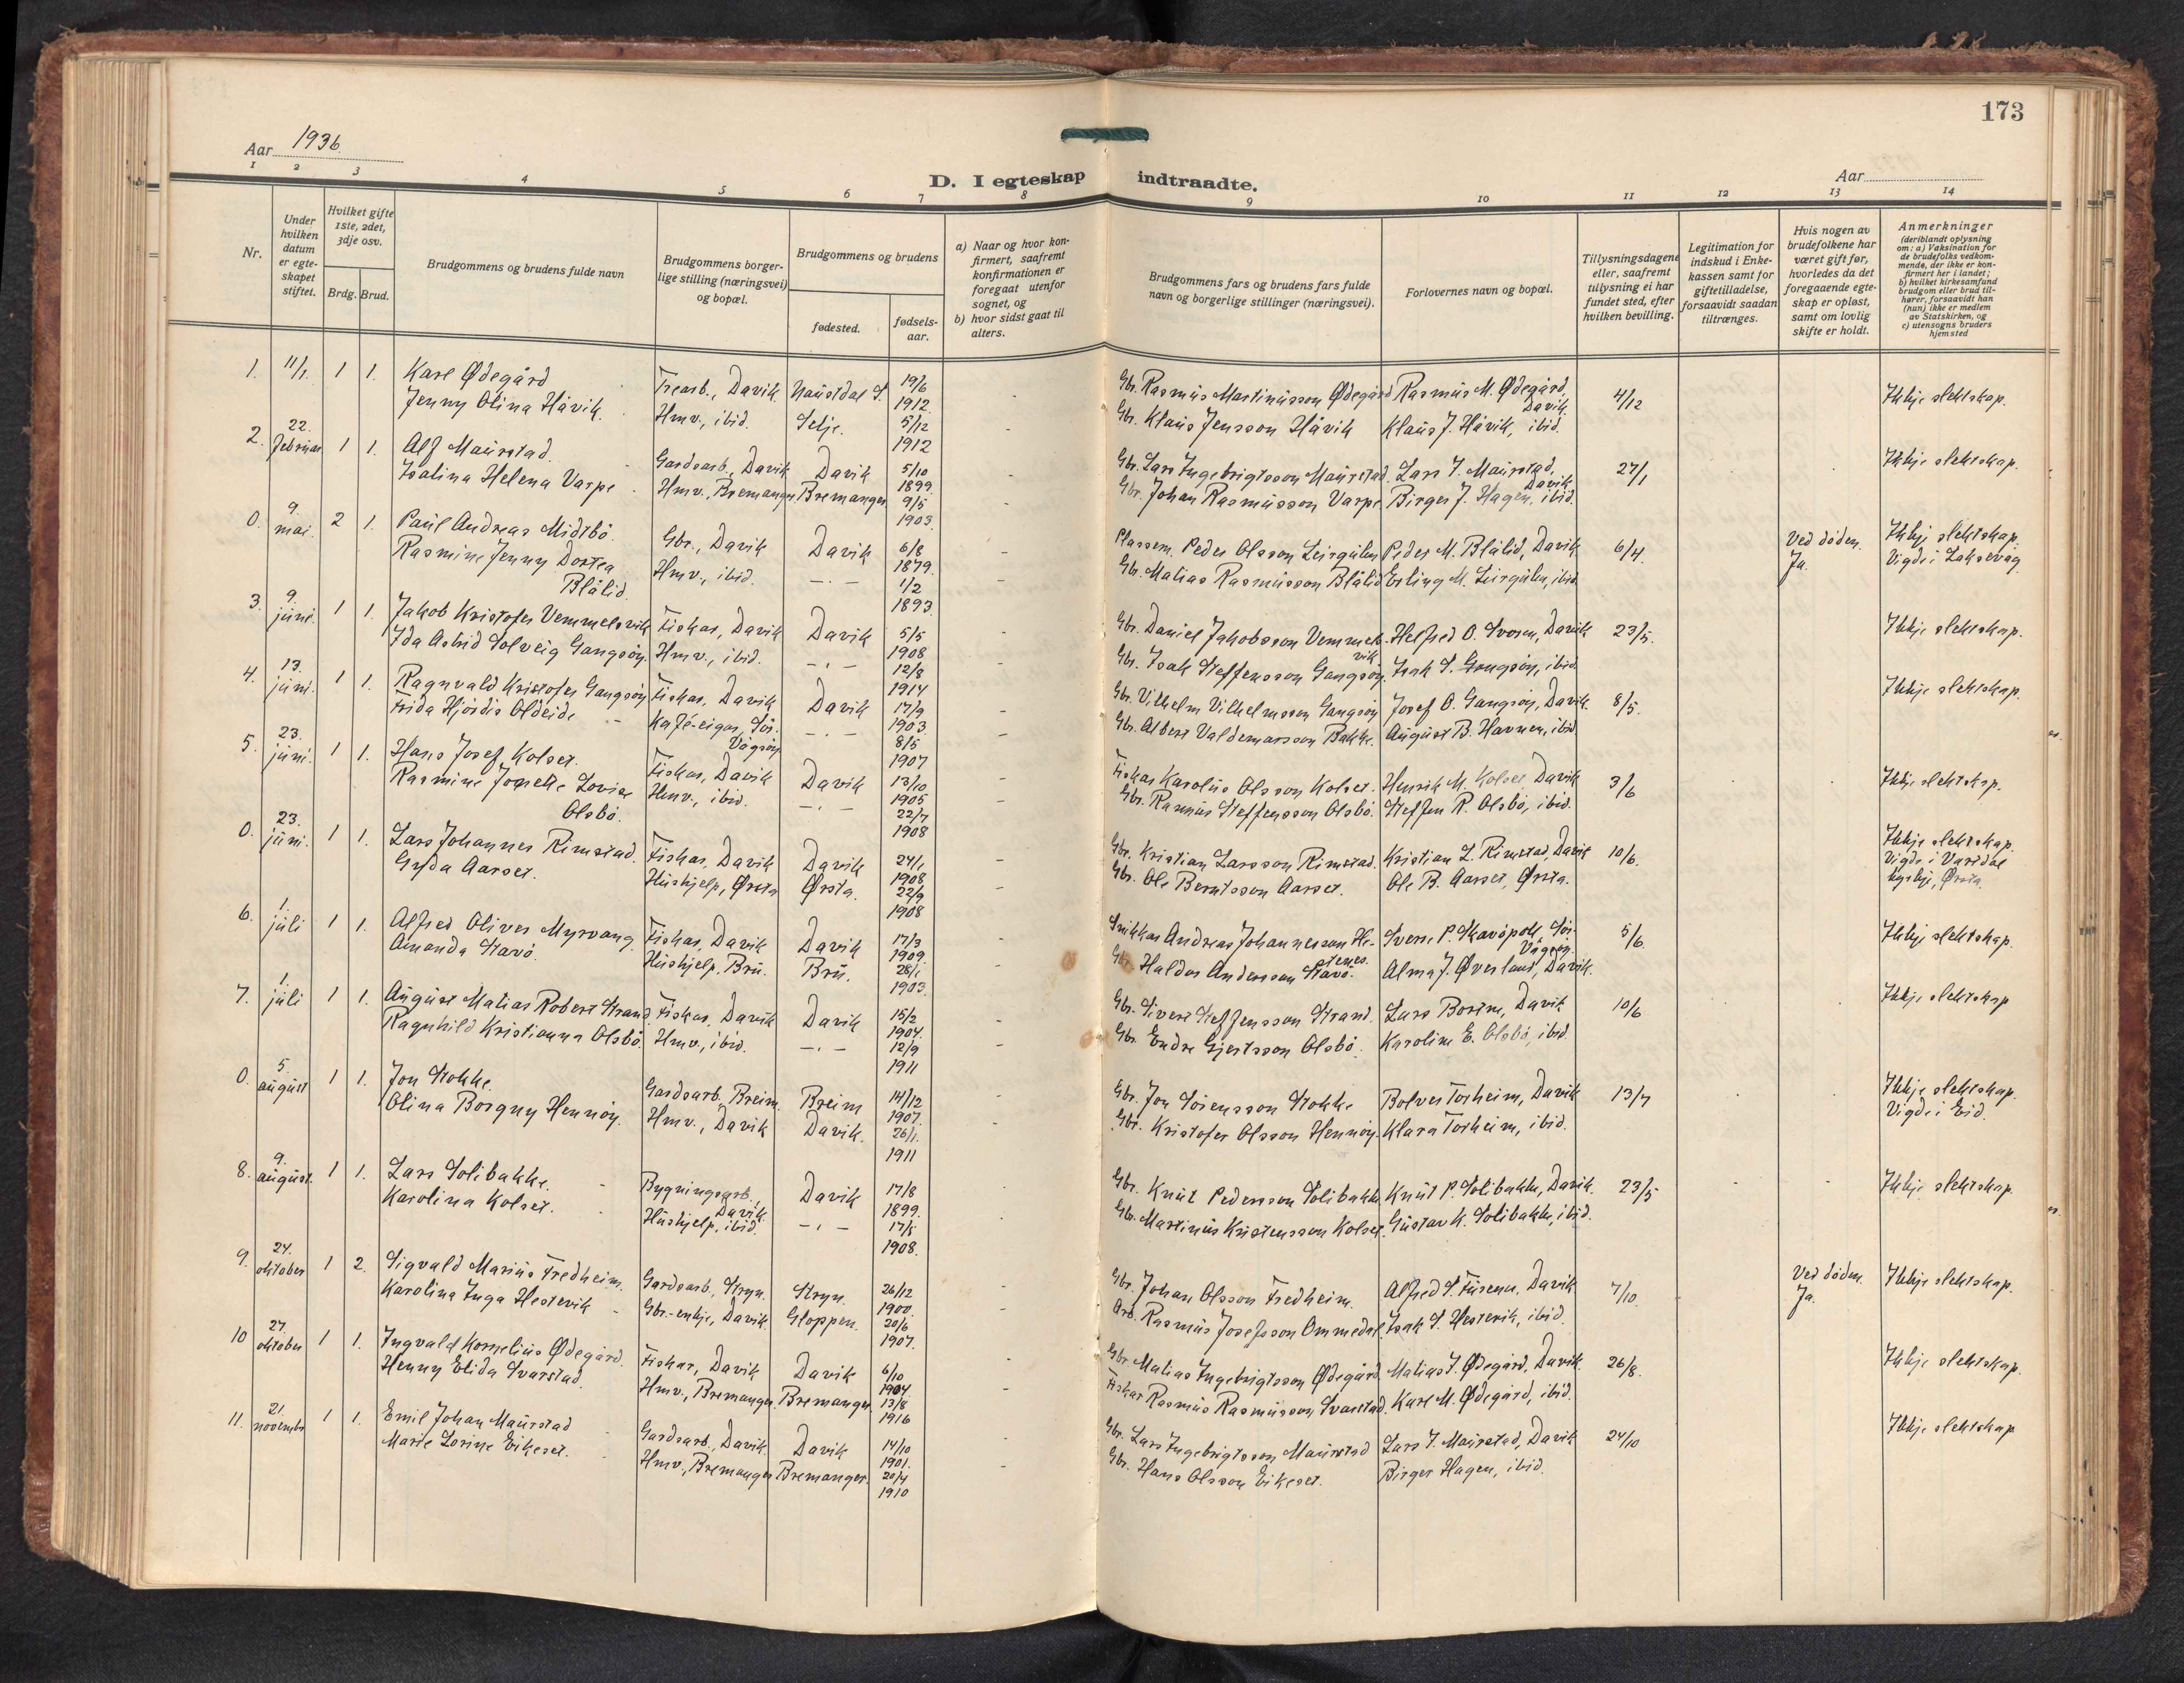 173
Aar 1936.
Aar
D. I egteskap indtraadte.
1 2 3 4 5 6 7 8 9 10 11 12 13 14
Nr.
Under hvilken datum er egte-skapet stiftet.
Hvilket gifte 1ste, 2det, 3dje osv.
Brdg. Brud.
Brudgommens og brudens fulde navn
Brudgommens borger-lige stilling (næringsvei) og bopæl.
Brudgommens og brudens
fødested.
fødsels-aar.
a) Naar og hvor kon-firmert, saafremt konfirmationen er foregaat utenfor sognet, og
b) hvor sidst gaat til alters.
Brudgommens fars og brudens fars fulde navn og borgerlige stillinger (næringsvei).
Forlovernes navn og bopæl.
Tillysningsdagene eller, saafremt tillysning ei har fundet sted, efter hvilken bevilling.
Legitimation for indskud i Enke-kassen samt for giftetilladelse, forsaavidt saadan tiltrænges.
Hvis nogen av brudefolkene har været gift før, hvorledes da det foregaaende egte-skap er opløst, samt om lovlig skifte er holdt.
Anmerkninger
(deriblandt oplysning om: a) Vaksination for de brudefolks vedkom-mende, der ikke er kon-firmert her i landet; b) hvilket kirkesamfund brudgom eller brud til-hører, forsaavidt han (hun) ikke er medlem av Statskirken, og c) utensogns bruders hjemsted
1. 11/1. 1 1. Kare Ødegård Trearb., Davik Naustdal S. 19/6 1912. Gbr. Rasmus Martinusson Ødegård Rasmus M. Ødegård, Davik. 4/12 Ikkje slektskap.
Jenny Olina Håvik. Hmv., ibid. Selje. 5/12 1912 Gbr. Klaus Jensson Håvik Klaus J. Håvik, ibid.
2. 22. februar 1 1. Alf Maurstad. Gardsarb., Davik Davik 5/10 1899. Gbr. Lars Ingebrigtsson Maurstad. Lars I. Maurstad, Davik 27/1 Ikkje slektskap.
Isalina Helena Varpe Hmv., Bremanger Bremanger 9/5 1903. Gbr. Johan Rasmusson Varpe Birger J. Hagen, ibid.
0. 9. mai. 2 1. Paul Andreas Midtbö. Gbr., Davik Davik 6/8 1879. Plassem. Peder Olsson Leirgulen Peder M. Blålid, Davik 6/4. Ved döden. Ja. Ikkje slektskap. Vigde i Laksevåg
Rasmine Jenny Dortea Blålid. Hmv., ibid. —.— 1/2 1893. Gbr. Matias Rasmusson Blålid Erling M. Leirgulen, ibid
3. 9. juni. 1 1. Jakob Kristofer Vemmelsvik Fiskar, Davik Davik 5/5 1908 Gbr. Daniel Jakobsson Vemmelsvik. Helfred O. Svoren, Davik 23/5. Ikkje slektskap.
Ida Astrid Solveig Gangsöy. Hmv., ibid. —.— 12/8 1914 Gbr. Isak Steffensson Gangsöy. Isak S. Gangsöy, ibid.
4. 13. juni. 1 1. Ragnvald Kristofer Gangsöy Fiskar, Davik Davik 17/9 1903. Gbr. Vilhelm Vilhelmsson Gangsöy Josef O. Gangsöy, Davik. 8/5. Ikkje slektskap.
Frida Hjördis Oldeide Kafé-eigar, Sör-Vågsöy. —.— 8/5 1907 Gbr. Albert Valdemarsson Bakke. August B. Havnen, ibid
5. 23. juni. 1 1. Hans Josef Kolset. Fiskar, Davik Davik 13/10 1905 Fiskar Karolius Olsson Kolset. Henrik M. Kolset Davik 3/6 Ikkje slektskap.
Rasmine Josette Lovise Olsbö. Hmv., ibid. —.— 22/7 1908 Gbr. Rasmus Steffensson Olsbö. Steffen R. Olsbö, ibid.
0. 23. juni. 1 1. Lars Johannes Rimstad. Fiskar, Davik Davik 24/1 1908 Gbr. Kristian Larsson Rimstad. Kristian L. Rimstad, Davik 10/6. Ikkje slektskap. Vigde i Vartdal kyrkje, Örsta.
Gyda Aarset. Hushjelp, Ørsta Ørsta. 22/9 1908 Gbr. Ole Berntsson Aarset. Ole B. Aarset, Ørsta.
6. 1. juli 1 1. Alfred Oliver Myrvang. Fiskar, Davik Davik 17/3 1909. Snikkar Andreas Johannesson He- stenes. Sverre P. Skavöpoll, Sör-Vågsöy. 5/6. Ikkje slektskap.
Amanda Stavö. Hushjelp. Bru. Bru. 28/1 1903. Gbr. Haldor Andersson Stavö. Alma J. Överland, Davik.
7. 1. juli 1 1. August Matias Robert Strand. Fiskar, Davik Davik 15/2 1904. Gbr. Sivert Steffensson Strand. Lars Bortne, Davik 10/6 Ikkje slektskap
Ragnhild Kristianna Olsbö. Hmv., ibid. —.— 12/9 1911 Gbr. Endre Gjertsson Olsbö. Karoline E. Olsbö, ibid.
0. 5. august 1 1. Jon Stokke. Gardsarb. Breim. Breim 14/12 1907. Gbr. Jon Sörensson Stokke Bolver Torheim, Davik 13/7 Ikkje slektskap. Vigde i Eid.
Olina Borgny Hennöy. Hmv., Davik Davik. 26/1. 1911 Gbr. Kristofer Olsson Hennöy. Klara Torheim, ibid.
8. 9. august. 1 1. Lars Solibakke. Bygningsarb., Davik. Davik 17/8 1899. Gbr. Knut Pedersson Solibakke Knut P. Solibakke, Davik. 23/5 Ikkje slektskap.
Karolina Kolset. Hushjelp, ibid. —.— 17/5 1908. Gbr. Martinus Kristensson Kolset. Gustav K. Solibakke, ibid.
9. 24. oktober 1 2. Sigvald Marius Fredheim. Gardsarb., Stryn. Stryn. 26/12 1900. Gbr. Johan Olsson Fredheim. Alfred S. Furenes. Davik 7/10. Ved döden. Ja. Ikkje slektskap.
Karolina Inga Hestevik Gbr.-enkje, Davik. Gloppen. 20/6 1907. Arb. Rasmus Josefsson Ommedal. Isak S. Hestevik, ibid.
10 27. oktober 1 1. Ingvald Kornelius Ødegård. Fiskar, Davik Davik 6/10 1904. Gbr. Matias Ingebrigtsson Ødegård. Matias I. Ødegård, Davik. 26/8. Ikkje slektskap.
Henny Elida Svarstad. Hmv., Bremanger. Bremanger. 13/8 1916 Fiskar Rasmus Rasmusson Svarstad. Kare M. Ødegård, ibid.
11. 21. november 1 1. Emil Johan Maurstad Gardsarb., Davik. Davik 14/10 1901. Gbr. Lars Ingebrigtsson Maurstad Lars I. Maurstad, Davik 24/10 Ikkje slektskap
Marie Lorine Eikeset. Hmv., Bremanger Bremanger. 20/4 1910 Gbr. Hans Olsson Eikeset. Birger Hagen, ibid.